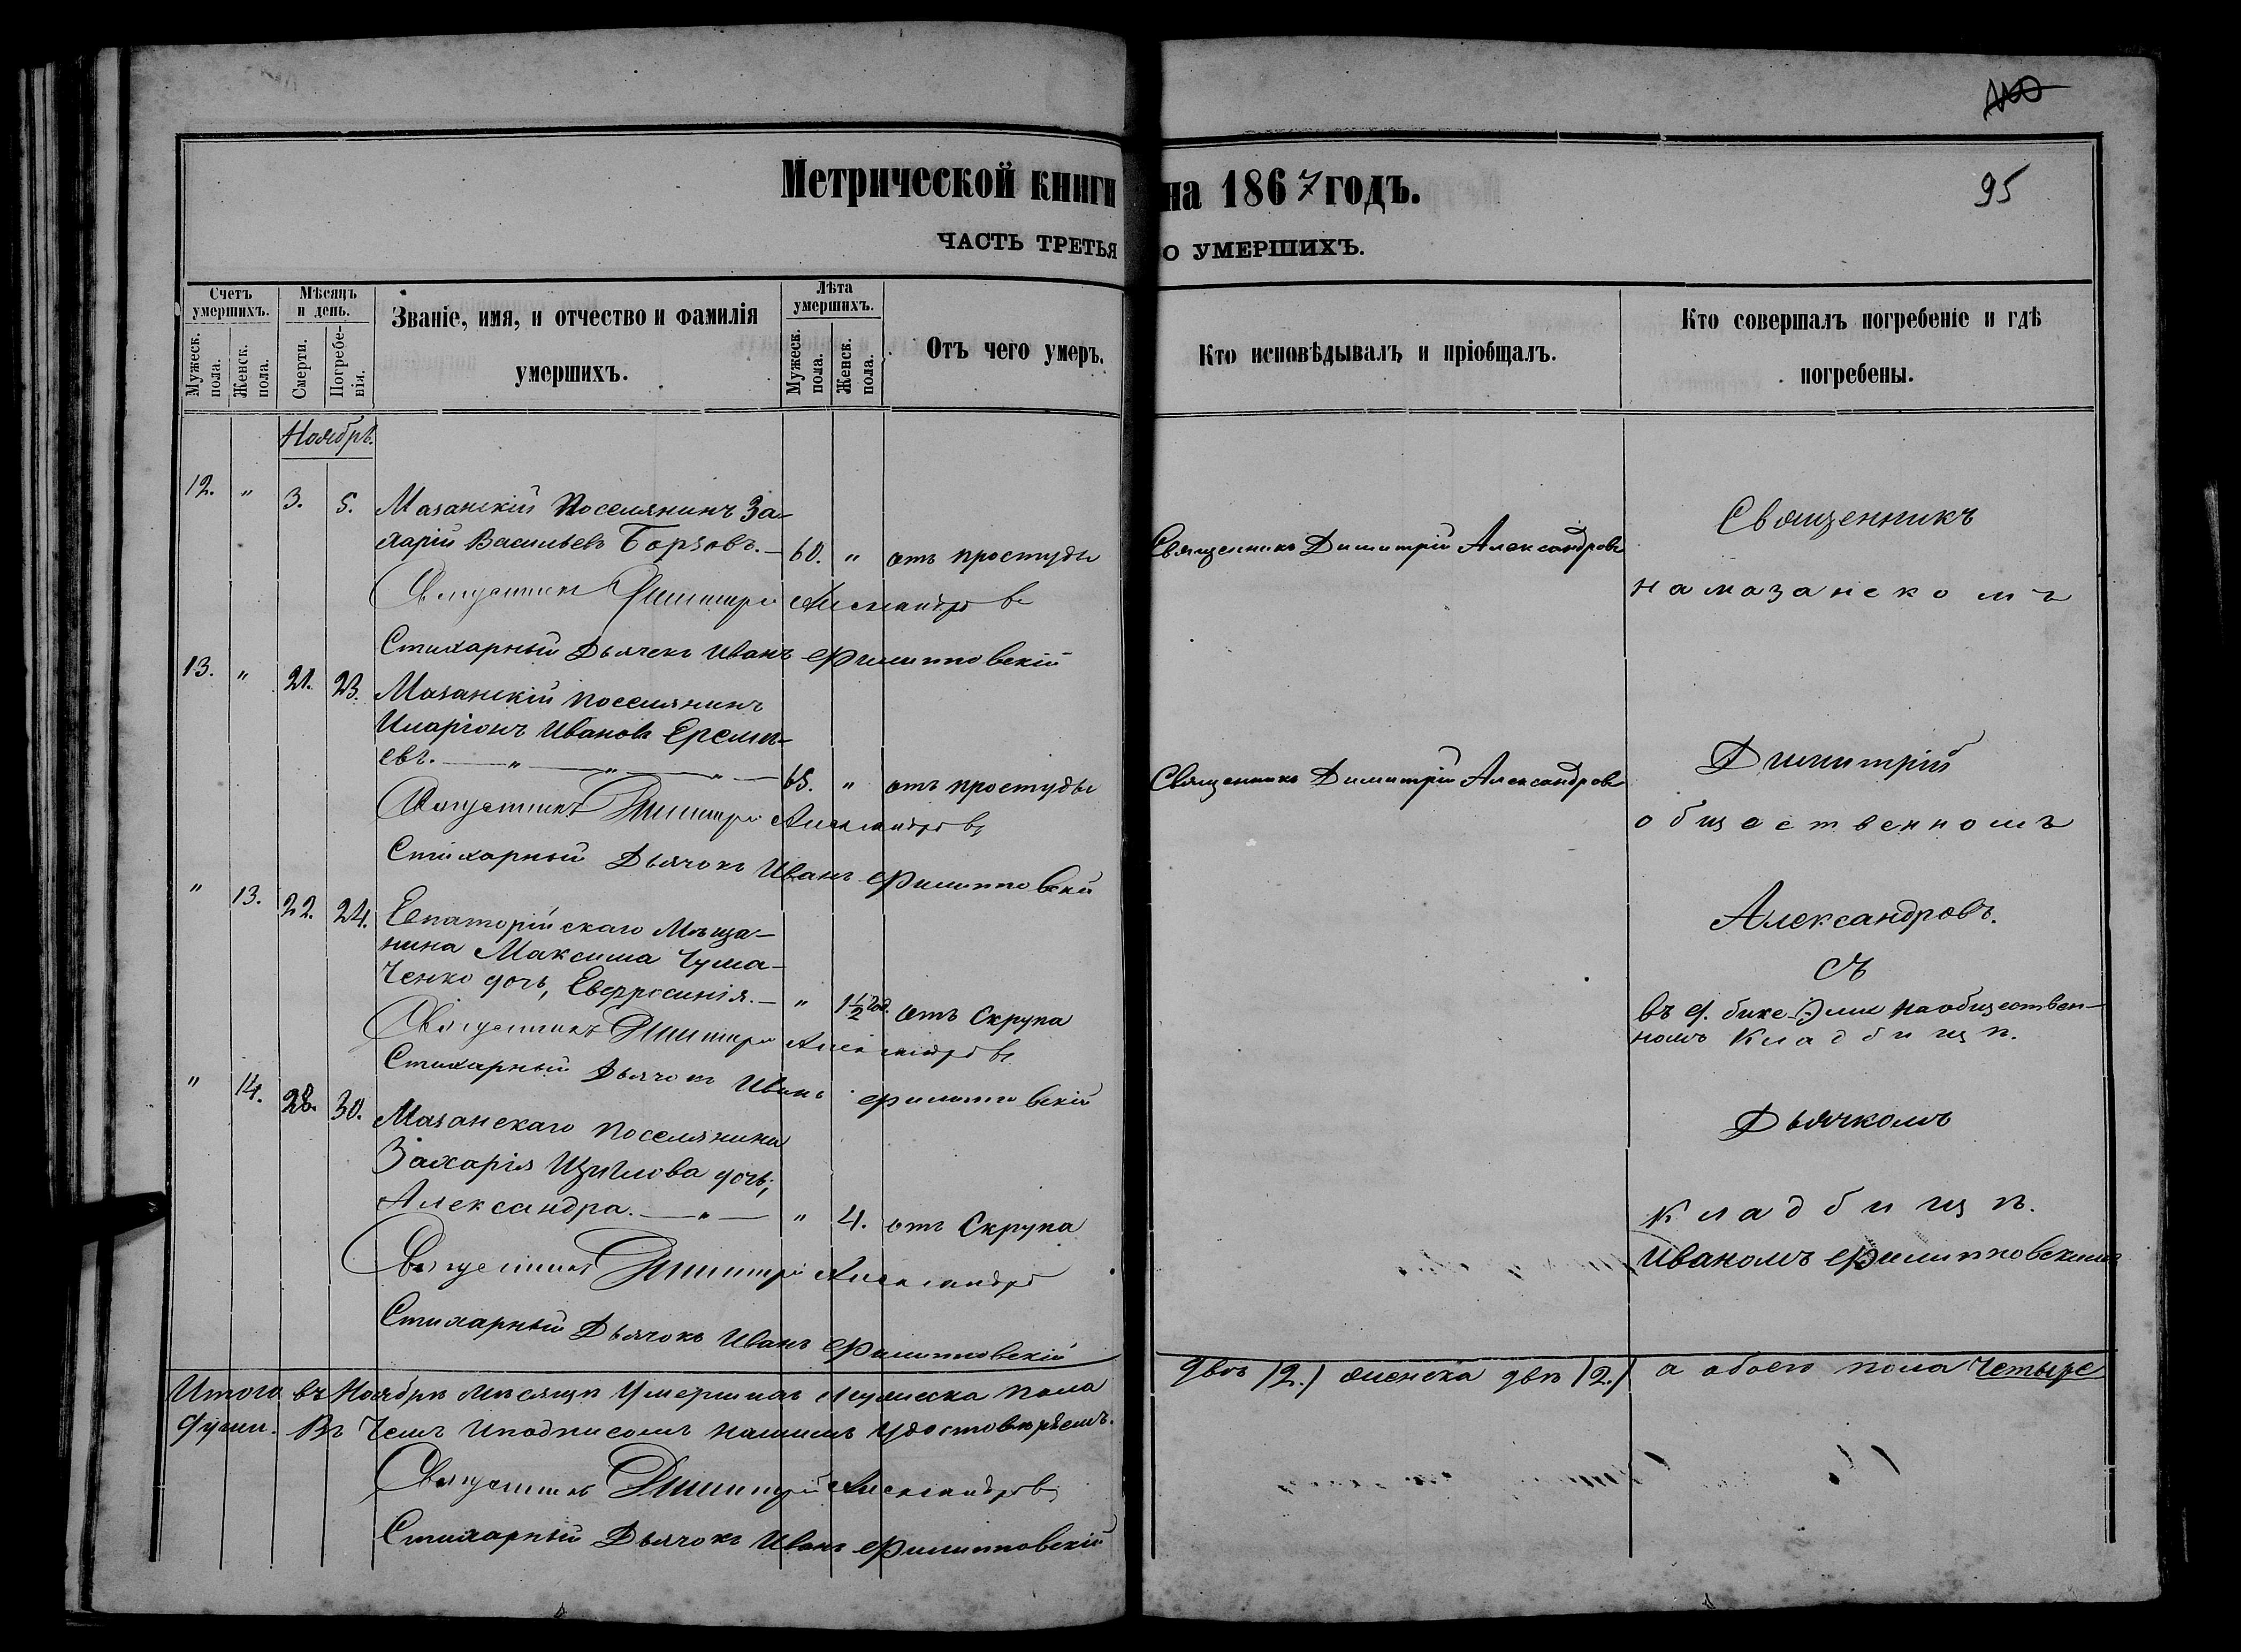 100
95
Метрической книги на 1867 годъ.
ЧАСТЬ ТРЕТЬЯ О УМЕРШИХЪ.
Счетъ умершихъ.
Мужеск. пола.
Женск. пола.
Мѣсяцъ и день.
Смерти.
Погребенія.
Званіе, имя, и отчество и фамилія
умершихъ.
Лѣта умершихъ.
Мужеск. пола.
Женск. пола.
Отъ чего умеръ.
Кто исповѣдывалъ и пріобщалъ.
Кто совершалъ погребеніе и гдѣ
погребены.
Ноябрь.
12. " 3. 5. Мазанскій Поселянинъ За-
харій Васильевъ Борзовъ. — 60. " отъ простуды Священникъ Димитрій Александровъ
Священникъ Димитрій Александровъ
Стихарный Дьячекъ Иванъ Филипповскій
13. " 21. 23. Мазанскій поселянинъ
Иларіонъ Ивановъ Ереми-
евъ. — " — " — " — 65. " отъ простуды Священникъ Димитрій Александровъ
Священникъ Димитрій Александровъ
Стихарный Дьячокъ Иванъ Филипповскій
" 13. 22. 24. Евпаторійскаго Мѣща-
нина Максима Чума-
ченко дочь, Евфросинія. — " 1 1/2 год. отъ Скрупа
Священникъ Димитрій Александровъ
Стихарный Дьячокъ Иванъ Филипповскій
" 14. 28. 30. Мазанскаго поселянина
Захарія дочь,
Александра. — " — " 4. отъ Скрупа
Священникъ Димитрій Александровъ
Стихарный Дьячокъ Иванъ Филипповскій
Священникъ
на мазанскомъ
Димитрій
общественномъ
Александровъ.
съ
въ д. бике-Эли на обществен-
номъ Кладбищѣ.
Дьячкомъ
Кладбищѣ.
Иваномъ Филипповскимъ
Итого въ Ноябрѣ мѣсяцѣ Умершихъ Мужеска пола двѣ /2./ женска двѣ /2./ а обоего пола Четыре
души. Въ Чемъ и подписомъ нашимъ удостовѣряемъ.
Священникъ Димитрій Александровъ
Стихарный Дьячокъ Иванъ Филипповскій